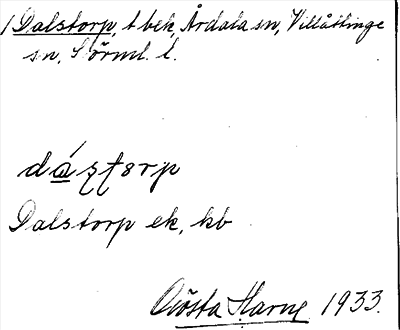 1 Dalstorp, t bek, Årdala sn, Villåttinge
sn, Sörml. l.
Dalstorp ek, kb
Gösta Harne 1933.